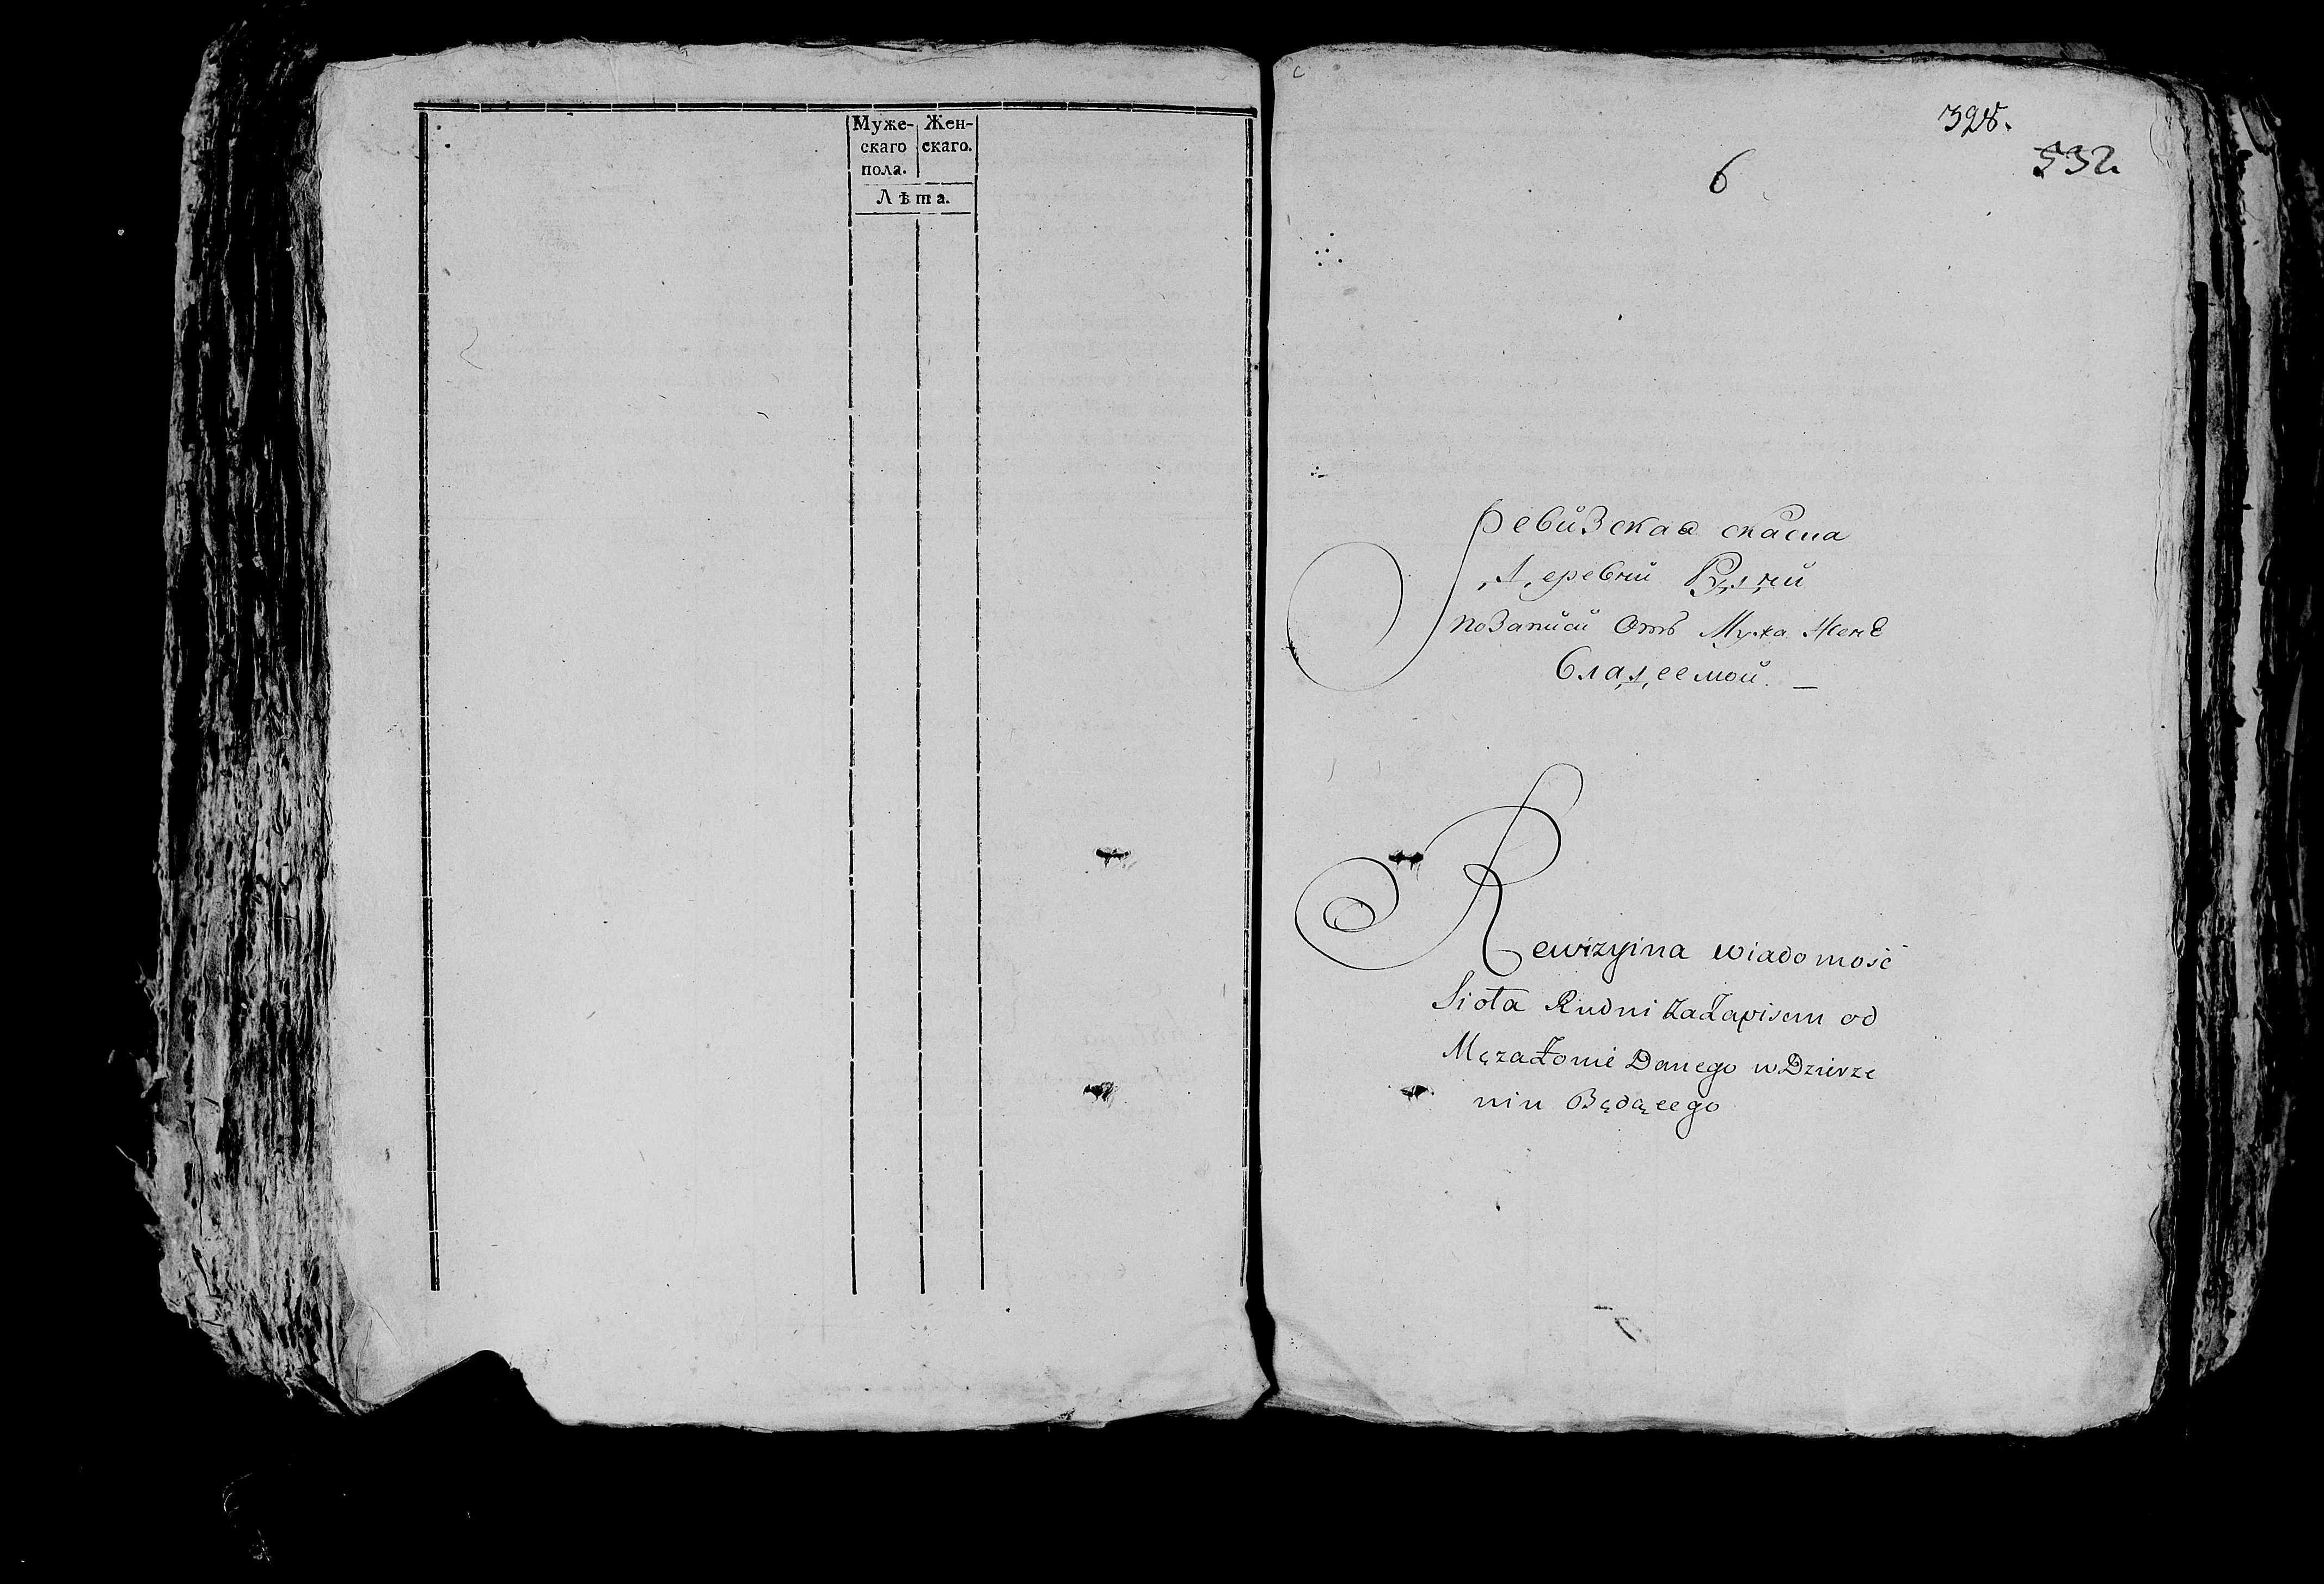 Муже- Жен-
скаго скаго.
пола.
Лѣта.
328.
532.
6
Ревизская скаска
деревни Рудни
по записи Отъ Мужа Женѣ
владеемой. —
Rewizyina wiadomość
Sioła Rudni za Zapisem od
Męza Zonie Danego w Dzierze
niu Będącego